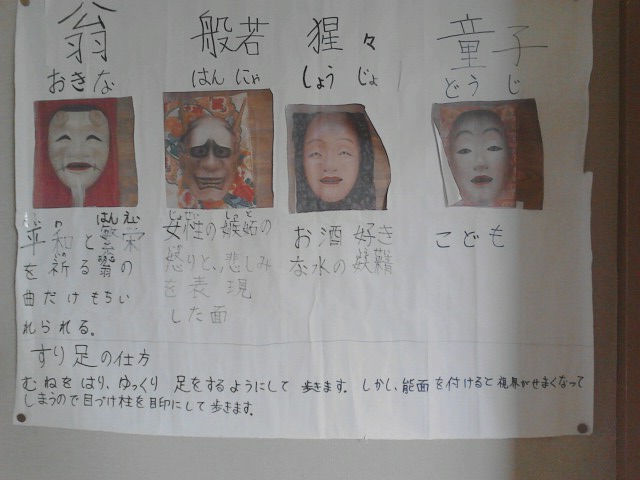 翁
おきな
平和と繁栄
わ
はんえい
を祈る翁の
曲だけもちい
れられる。
般若
はんにゃ
女性の嫉妬の
じょせい
しっと
怒りと、悲しみ
を表現
した面
猩々
しょうじょ
お酒好き
な水の妖精
童子
どうじ
こども
すり足の仕方
むねをはり、ゆっくり 足をするようにして 歩きます。しかし、能面を付けると視界がせまくなって
しまうので目づけ柱を目印にして歩きます。